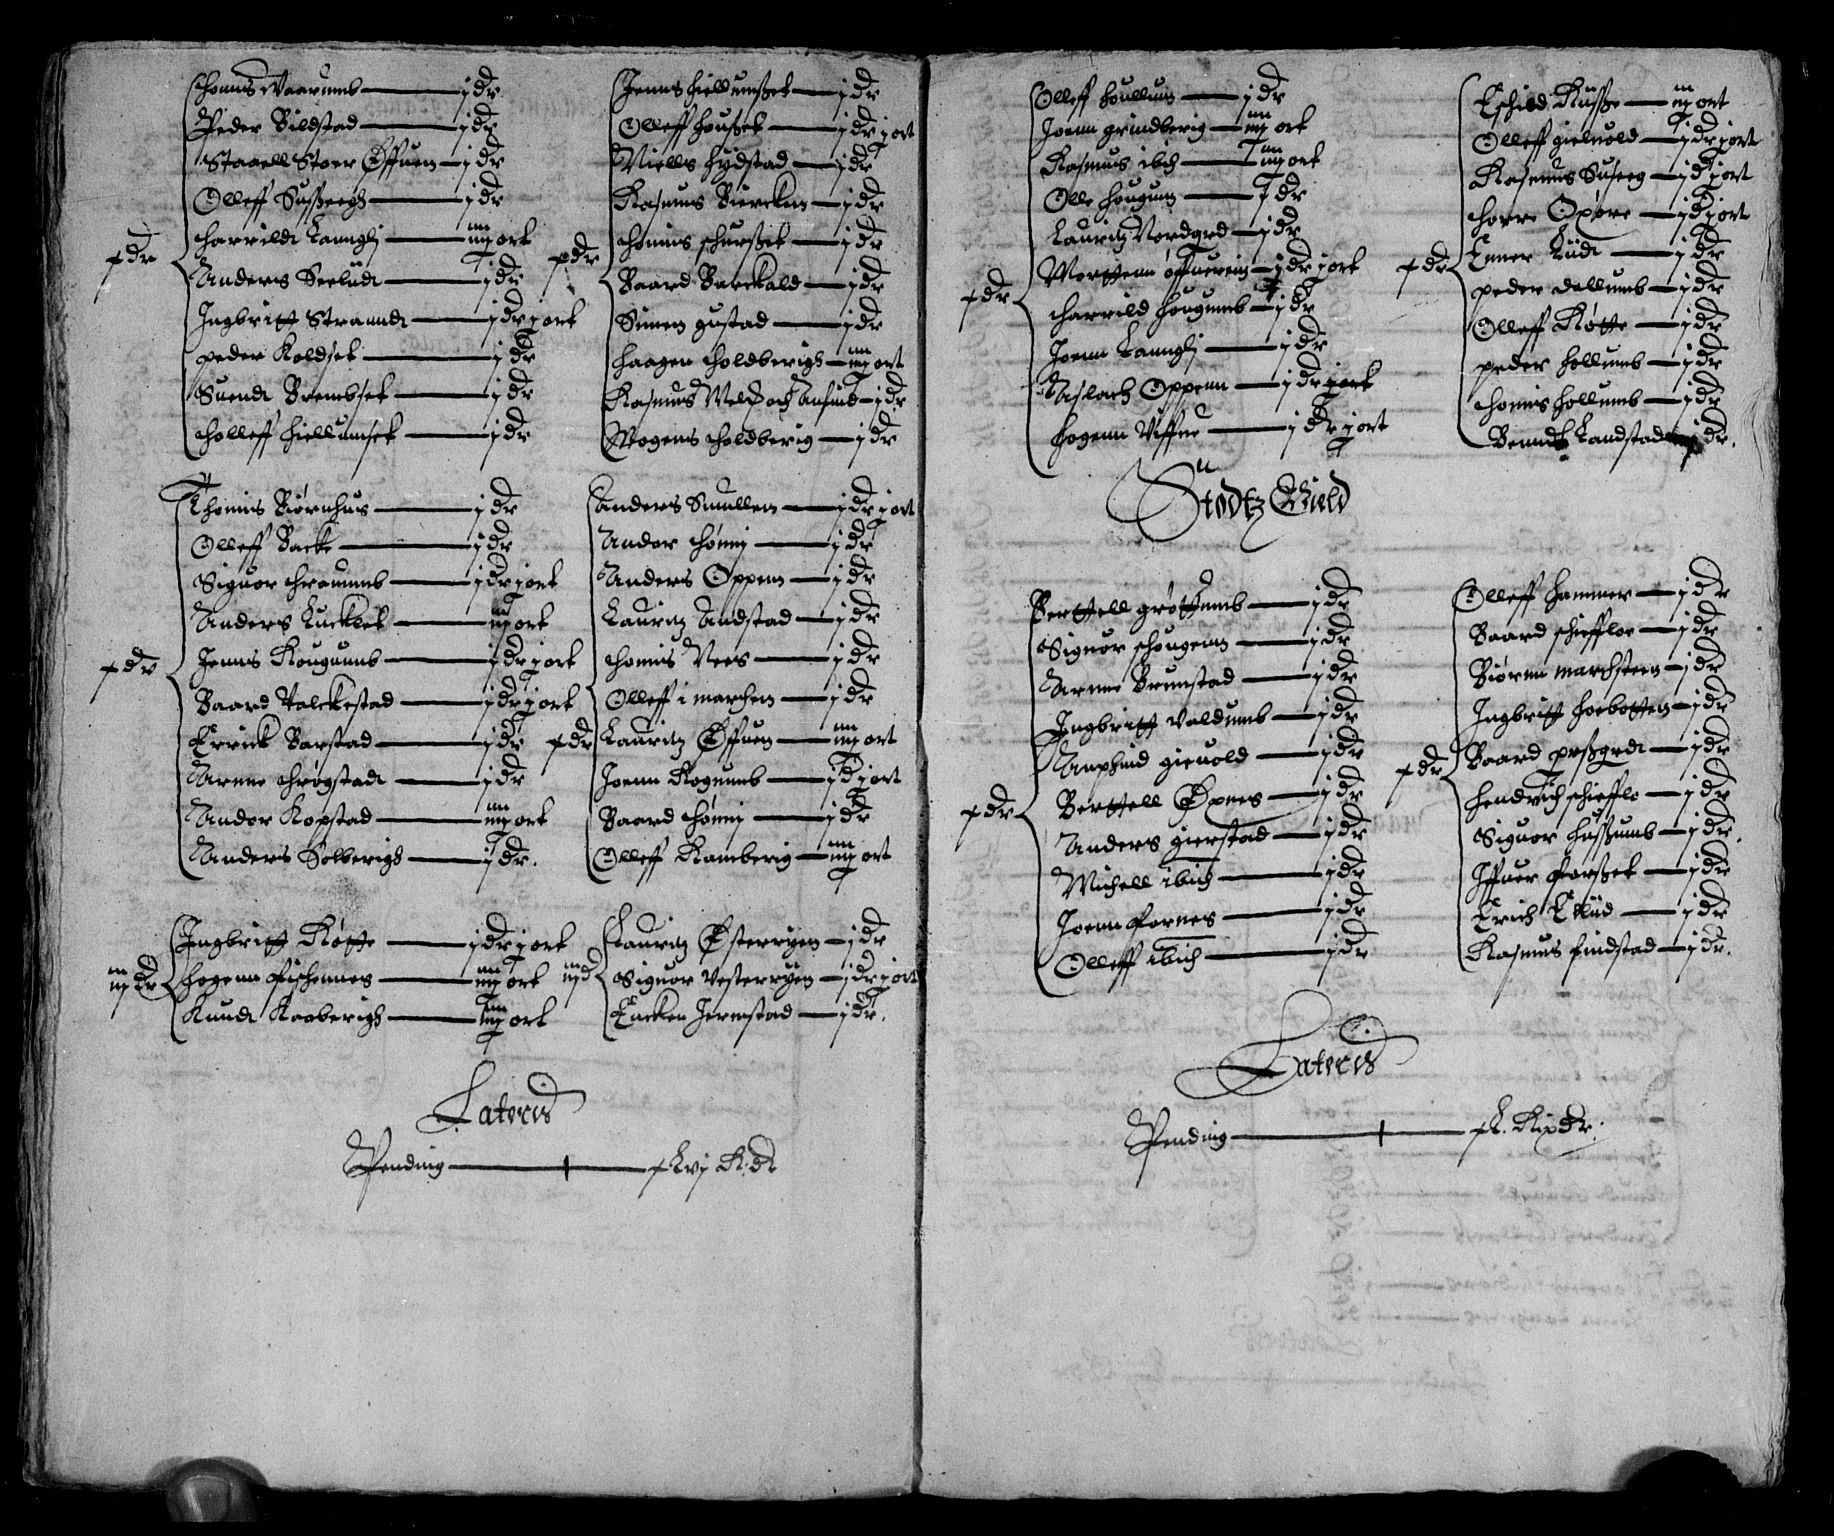 Thomis Vaarumb — j dr
Peder Bildstad — j dr
Staaell Stoer Øffuen — j dr
Olleff Sußeegh — j dr
Harrildt Langli — iij ort
Anders Seelüdt — j dr
Ingbritt Strandt — j dr j ort
peder Koldset — j dr
Suendt Brembset — j dr
Tholleff Hiellumset — j dr
x dr
Jenns Hiellumßet — j dr
Olleff Houßet — j dr j ort
Niells Hydstad — j dr
Rasmus Biercken — j dr
Thomis Schurßet — j dr
Baard Barckald — j dr
Simen Gustad — j dr
Haagen Tholdberigh — iij ort
Rasmus och — j dr
Mogens Tholdberig — j dr
x dr
Thomis Biørnhus — j dr
Olleff Backe — j dr
Siguor Thraanumb — j dr j ort
Anders — iij ort
Jenns Rougumb — j dr j ort
Baard Valckestad — j dr j ort
Errick Barstad — j dr
Arnne Thrøgstadt — j dr
Andor Kopstad — iij ort
Anders Solberigh — j dr.
x dr
Anders Smullen — j dr j ort
Andor Thønni — j dr
Anders Oppenn — j dr
Lauritz Andstad — j dr
Thomis Vees — j dr
Olleff i marchen — j dr
Lauritz Øffuen — iij ort
Joenn Rogumb — j d j ort
Baard Thønni — j dr
Olleff Ramberig — iij ort
x dr
Ingbritt Røtte — j dr j ort
Hogenn Fischennes — iij ort
Knudt Kaaberigh — iij ort
iij dr
Lauritz Østerryen — j dr
Siguor Vesterryen — j dr j ort
Jermstad — j dr.
iij d
Lateris
Pending — xLvj R. dr
Olleff Houllum — j dr
Joenn Grindberig — iij ort
Rasmus ibid — iij ort
Olle Hougum — j dr
Lauritz Nordgrd — j dr
Morttenn Øffuereing — j dr j ort
Harrild Hougumb — j dr
Joenn Langli — j dr
Aslach Oppenn — j dr j ort
Hogenn Viffue — j dr j ort
x dr
Eschild Russe — iij ort
Olleff Gieluold — j dr j ort
Rasmus Suseeg — j d j ort
Thorre Opsøre — j d j ort
Enner Liidt — j dr
peder dallumb — j dr
Olleff Røtte — j dr
peder Hollumb — j dr
Thomis Hollumb — j dr
Benndt Landstad — j dr.
x dr
Stodtz Gield
Berttell Grøttumb — j dr
Siguor Schougenn — j dr
Arnne Brunstad — j dr
Ingbritt Valdumb — j dr
Anphind Gieuold — j dr
Berttell Øxnes — j dr
Anders Gierstad — j dr
Michell ibid — j dr
Joenn Fornes — j dr
Olleff ibid — j dr
x dr
Olleff Hammer — j dr
Baard Schieffloe — j dr
Biørnn Marchsteen — j dr
Ingbritt Foebotten — j dr
Baard preßgrdt — j dr
Hendrich Schiefflo — j dr
Siguor Hußumb — j dr.
Iffuer Forßet — j dr
Erich — j dr
Rasmus Findstad — j dr.
x dr
Lateris
Pending — xL. Rixdr.